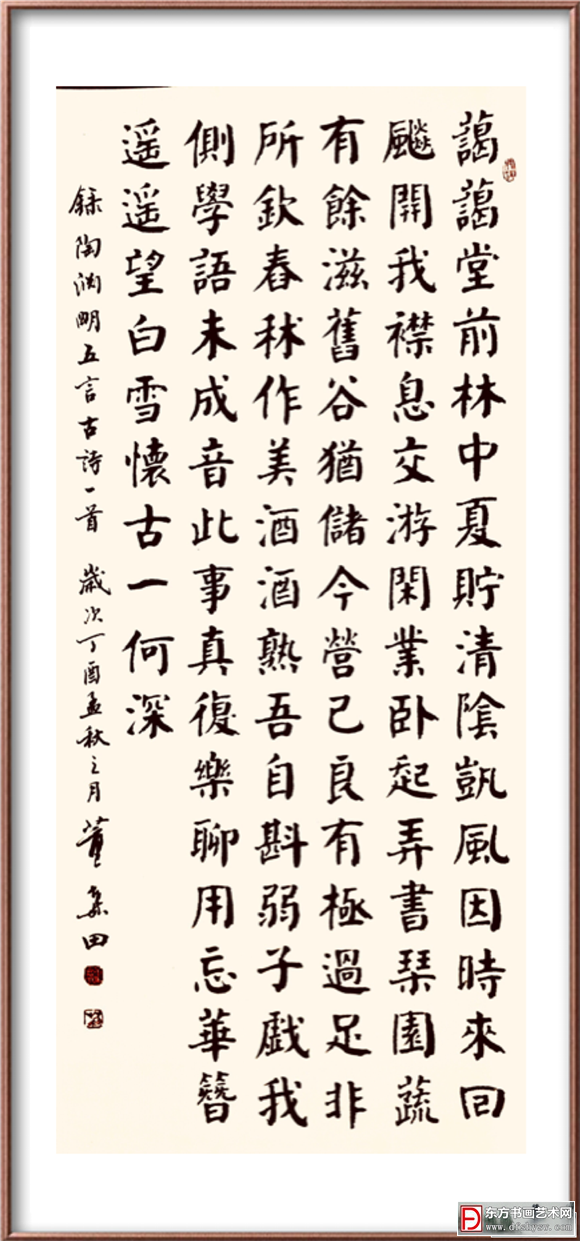 藹藹堂前林中夏貯清陰凱風因時來回
飈開我襟息交游閑業卧起弄書琴園蔬
有餘滋舊谷猶儲今營己良有極過足非
所欽舂秫作美酒酒熟吾自斟弱子戯我
側學語未成音此事真復樂聊用忘華簪
遥遥望白雪懷古一何深
録陶渊明五言古詩一首 歲次丁酉孟秋之月 董集田
东方书画艺术网